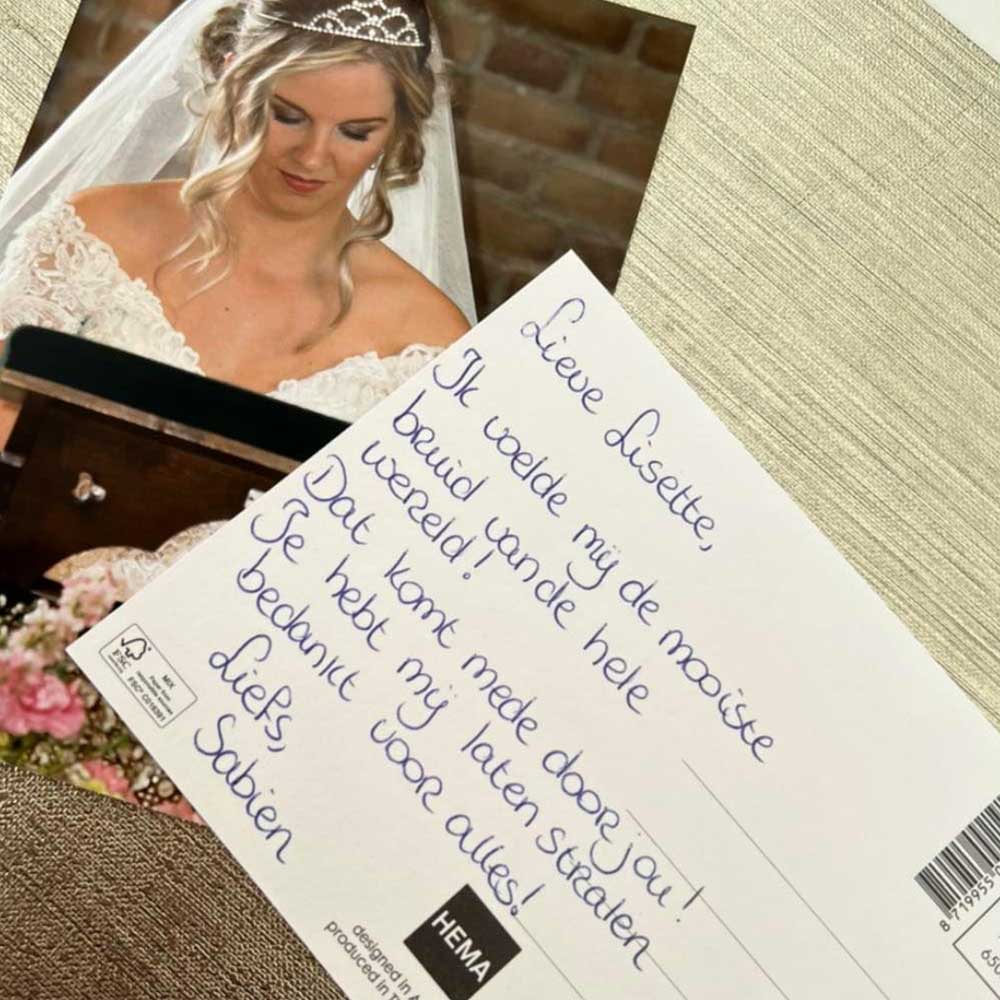 Lieve Lisette,
Ik voelde mij de mooiste
bruid van de hele
wereld!
Dat komt mede door jou!
Je hebt mij laten stralen
bedankt voor alles!
Liefs,
Sabien
FSC
MIX
FSC® C016391
HEMA
designed in
produced in
8 719955